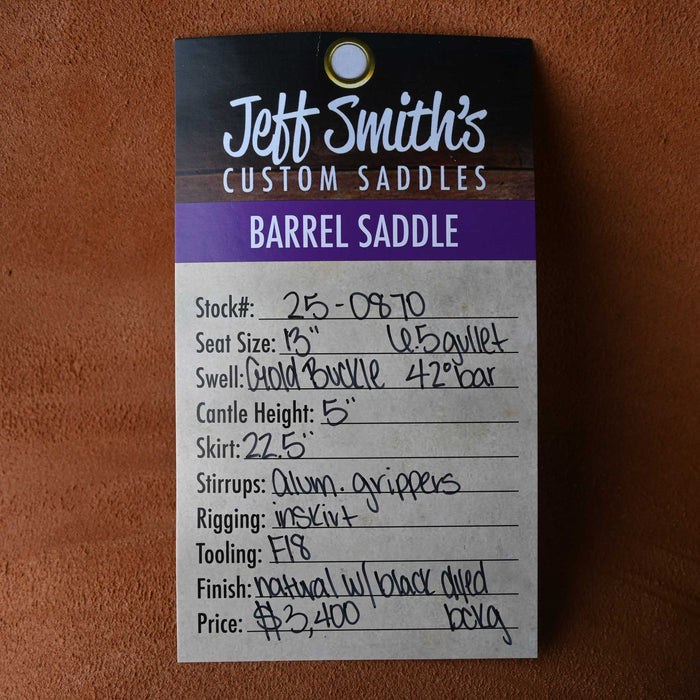 Jeff Smith's
CUSTOM SADDLES
BARREL SADDLE
Stock#: 25-0870
Seat Size: 13" 6.5 gullet
Swell: Gold Buckle 42° bar
Cantle Height: 5"
Skirt: 22.5"
Stirrups: alum. grippers
Rigging: inskirt
Tooling: F18
Finish: natural w/ black dyed
Price: $3,400 bckg